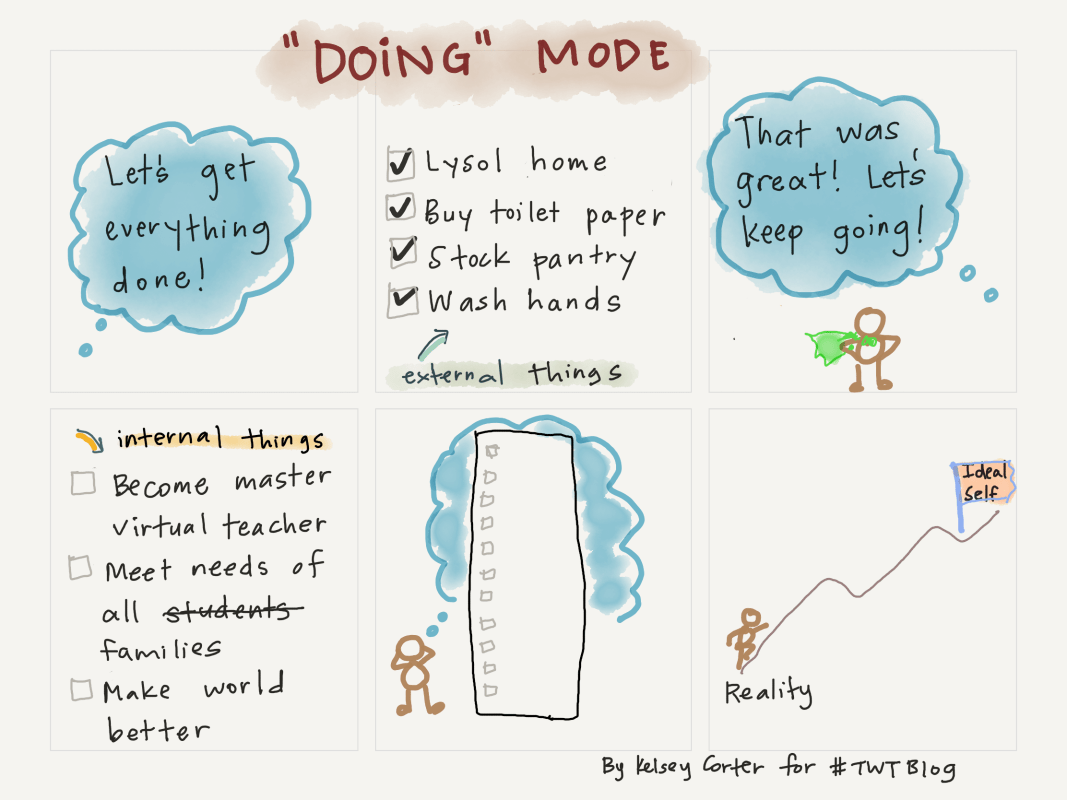 "DOING" MODE
Let's get
everything
done!
Lysol home
Buy toilet paper
Stock pantry
Wash hands
external things
That was
great! Let's
keep going!
internal things
Become master
virtual teacher
Meet needs of
all students
families
Make world
better
Ideal
Self
Reality
By Kelsey Corter for #TWTBlog